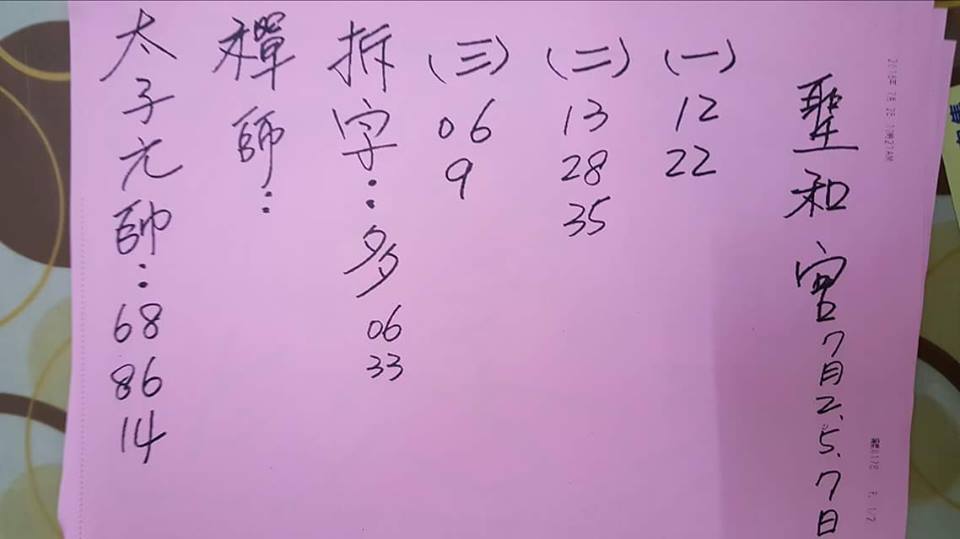 聖和宮7月2.5.7日
(一) 12 22
(二) 13 28 35
(三) 06 9
拆字:多 06 33
禪師:
太子元帥:68 86 14